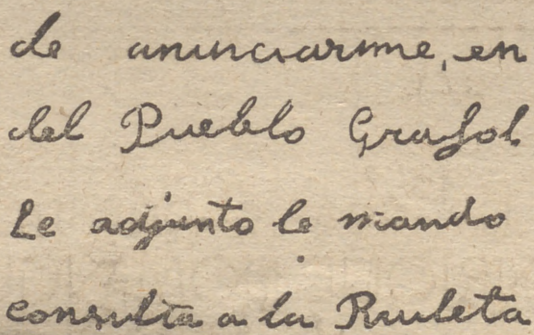 de anunciarme, en
del Pueblo Grafol
Le adjunto le mando
consulta a la Ruuleta